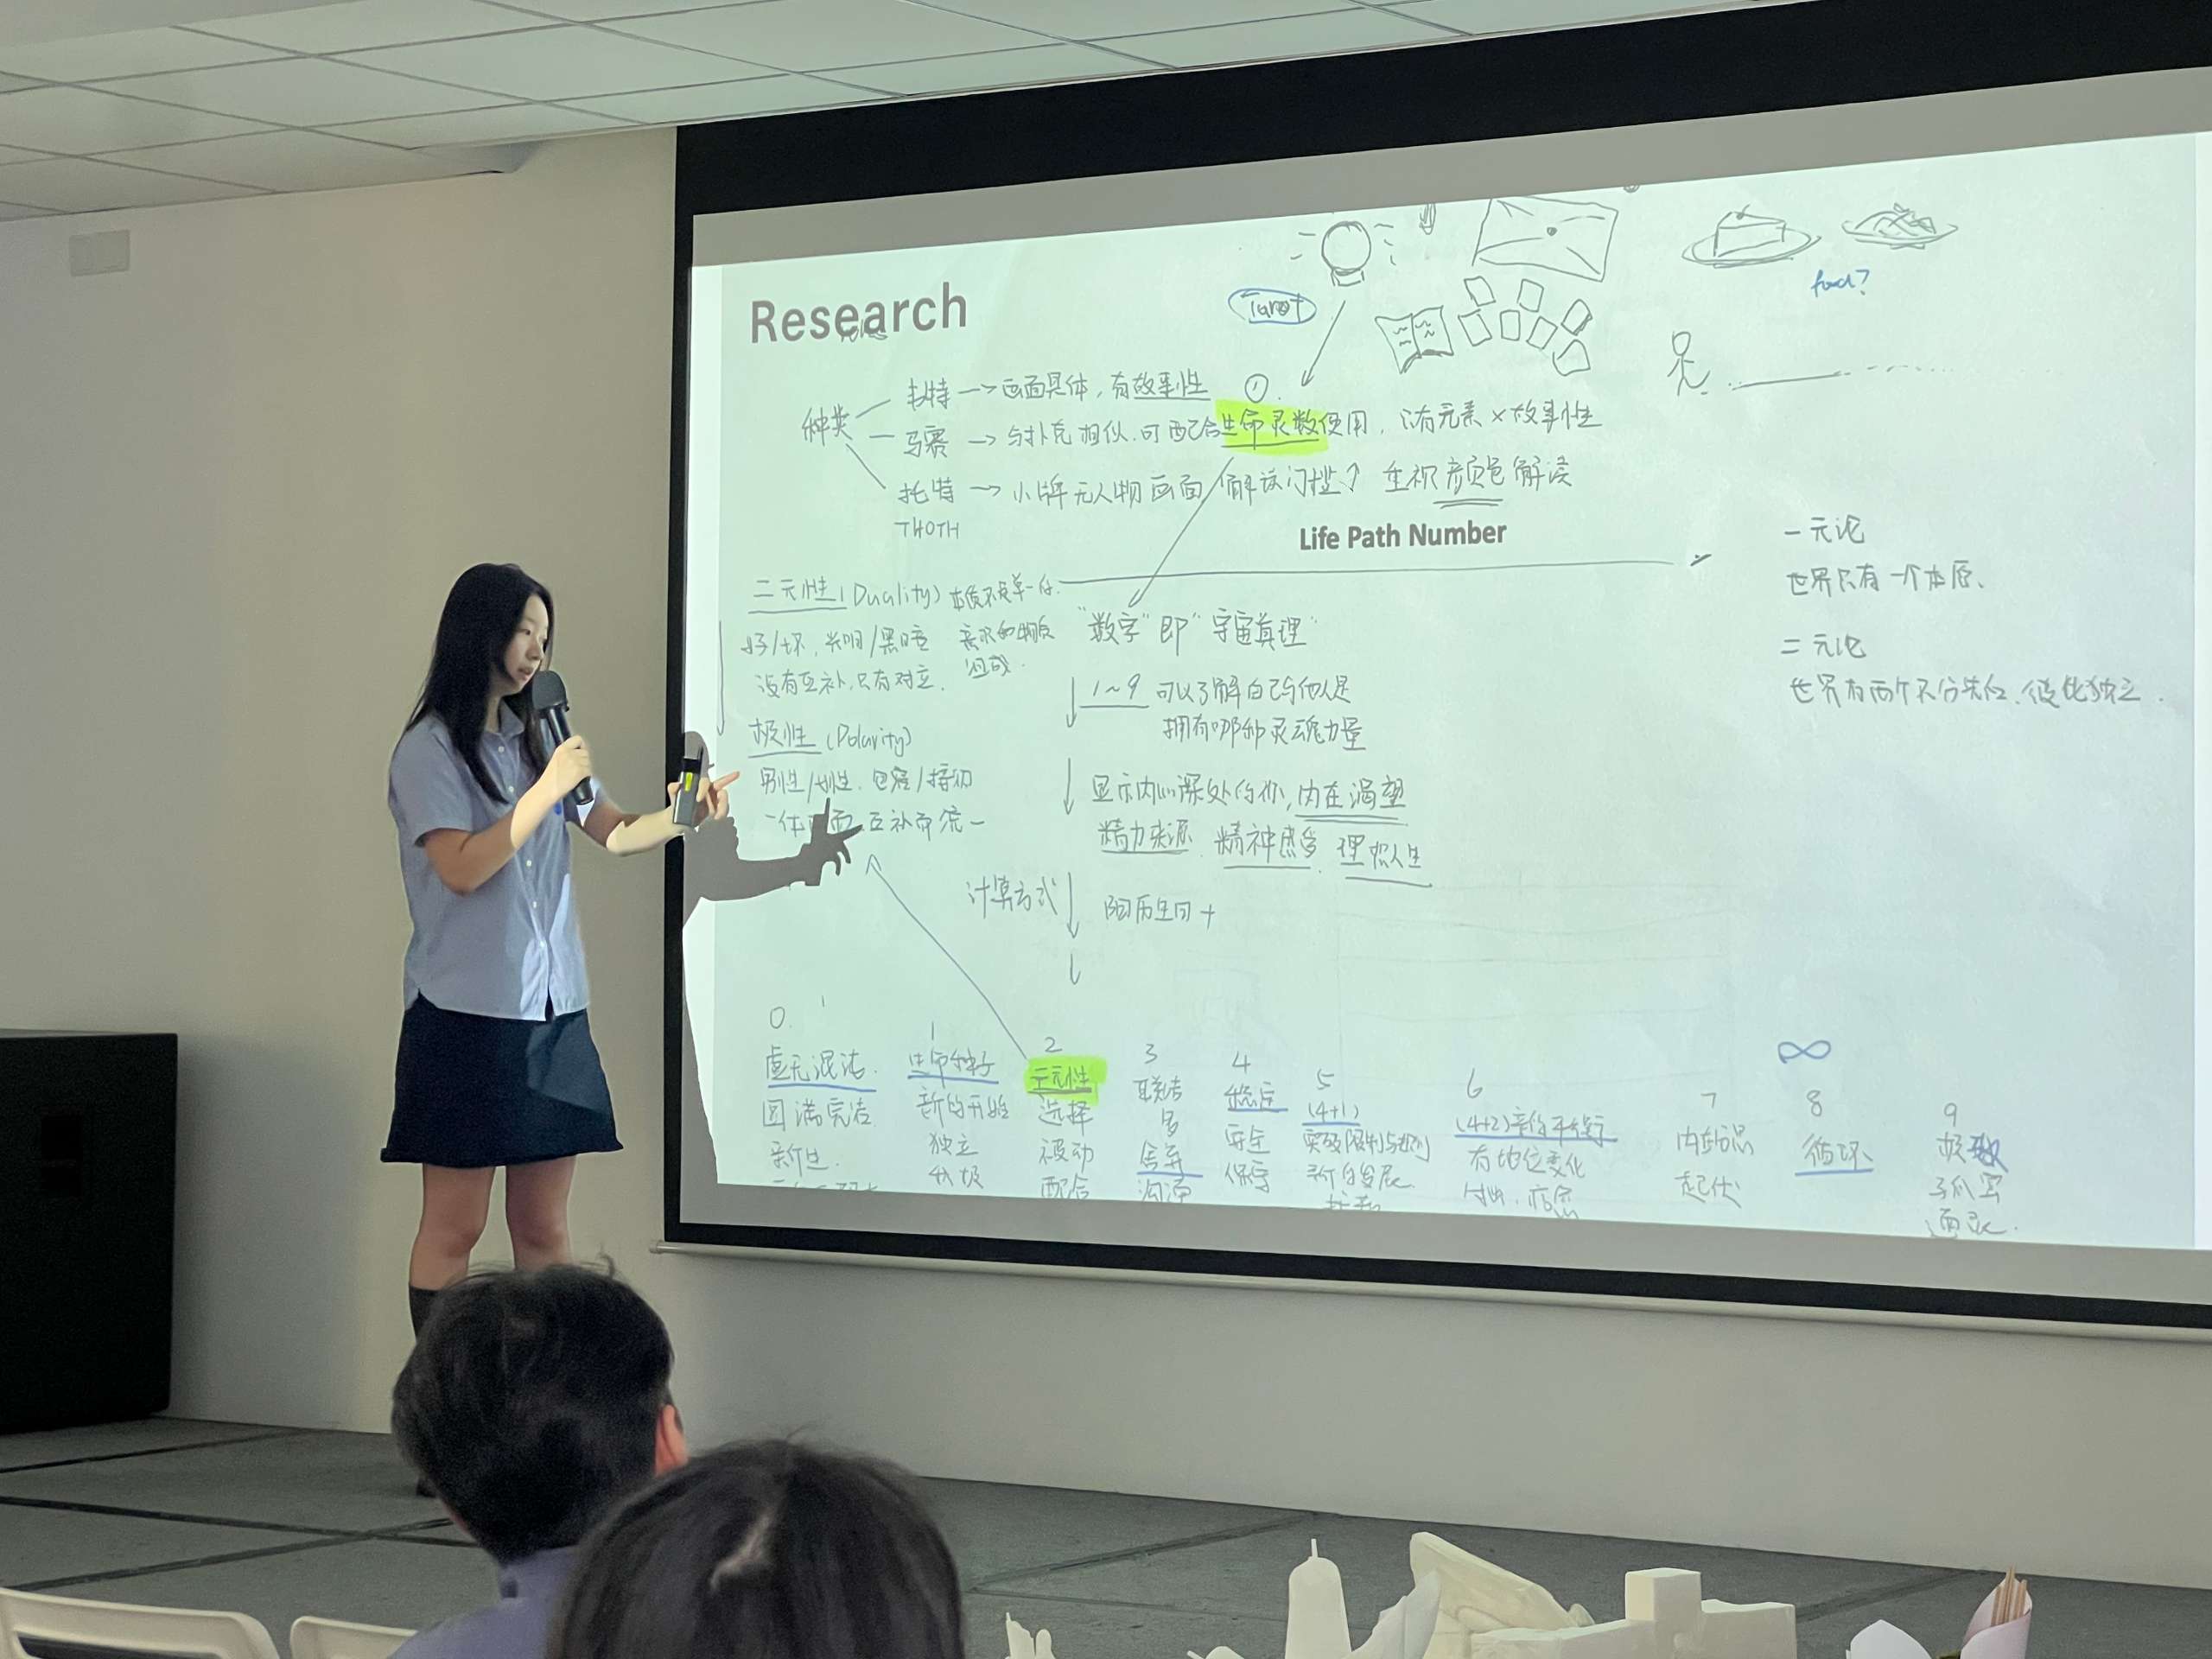 Research
Tarot
food?
种类
韦特 → 画面具体，有故事性
①
马赛 → 与扑克相似，可配合生命灵数使用，没有元素×故事性
托特 → 小牌无人物画面 解读门槛↑ 重视颜色解读
THOTH
Life Path Number
二元性(Duality) 本质不是单一的.
好/坏，光明/黑暗
没有互补，只有对立.
组成.
极性 (Polarity)
男性/女性，包容/接纳
一体两面，互补而统一
"数字"即"宇宙真理"
1~9 可以了解自己与他人是
拥有哪种灵魂力量
显示内心深处的你，内在渴望
精力来源、精神感受、理想人生
计算方式
阳历生日+
一元论
世界只有一个本原、
二元论
世界有两个不分先后、彼此独立.
0.
虚无混沌.
圆满完洁
新生.
1
生命种子
新的开始
独立
积极
2
二元性
选择
被动
配合
3
联结
多
沟通
4
稳定
安全
保守
5
(4+1)
突破限制与规则
新的发展
6
(4+2)
有地位变化
付出.
7
起伏
∞
8
循环
9
极致